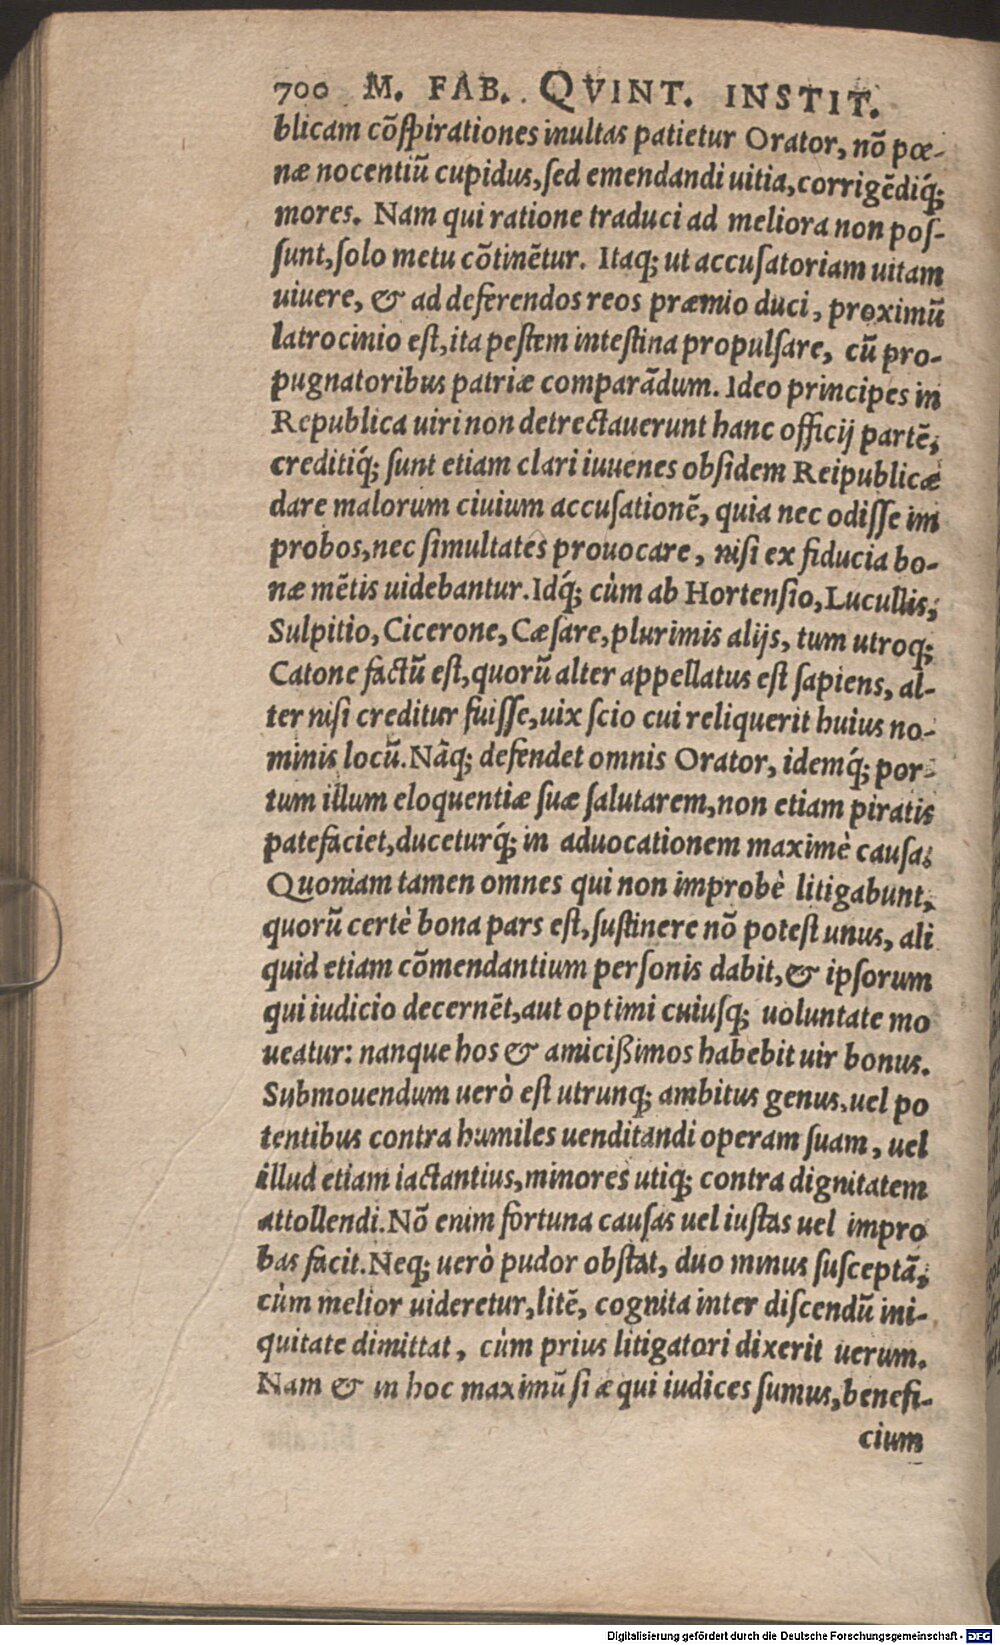 700 M. FAB. QVINT. INSTIT.
blicam cõſpirationes inultas patietur Orator, nõ pœ-
næ nocentiũ cupidus, ſed emendandi uitia, corrigẽdiq́;
mores. Nam qui ratione traduci ad meliora non poſ-
ſunt, ſolo metu cõtinẽtur. Itaq; ut accuſatoriam uitam
uiuere, & ad deferendos reos præmio duci, proximũ
latrocinio eſt, ita peſtem inteſtina propulſare, cũ pro-
pugnatoribus patriæ comparãdum. Ideo principes in
Republica uiri non detrectauerunt hanc officij partẽ,
creditiq́; ſunt etiam clari iuuenes obſidem Reipublicæ
dare malorum ciuium accuſationẽ, quia nec odiſſe im
probos, nec ſimultates prouocare, niſi ex fiducia bo-
næ mẽtis uidebantur. Idq́; cùm ab Hortenſio, Lucullis,
Sulpitio, Cicerone, Cæſare, plurimis alijs, tum utroq;
Catone factũ eſt, quorũ alter appellatus eſt ſapiens, al-
ter niſi creditur fuiſſe, uix ſcio cui reliquerit huius no-
minis locũ. Nãq; defendet omnis Orator, idemq́; por-
tum illum eloquentiæ ſuæ ſalutarem, non etiam piratis
patefaciet, duceturq́; in aduocationem maximè cauſa.
Quoniam tamen omnes qui non improbè litigabunt,
quorũ certè bona pars eſt, ſuſtinere nõ poteſt unus, ali
quid etiam cõmendantium perſonis dabit, & ipſorum
qui iudicio decernẽt, aut optimi cuiuſq; uoluntate mo
ueatur: nanque hos & amicißimos habebit uir bonus.
Submouendum uerò eſt utrunq; ambitus genus, uel po
tentibus contra humiles uenditandi operam ſuam, uel
illud etiam iactantius, minores utiq; contra dignitatem
attollendi. Nõ enim fortuna cauſas uel iuſtas uel impro
bas facit. Neq; uerò pudor obſtat, quo minus ſuſceptã,
cùm melior uideretur, litẽ, cognita inter diſcendũ ini-
quitate dimittat, cùm prius litigatori dixerit uerum.
Nam & in hoc maximũ ſi æqui iudices ſumus, benefi-
cium
Digitalisierung gefördert durch die Deutsche Forschungsgemeinschaft - DFG